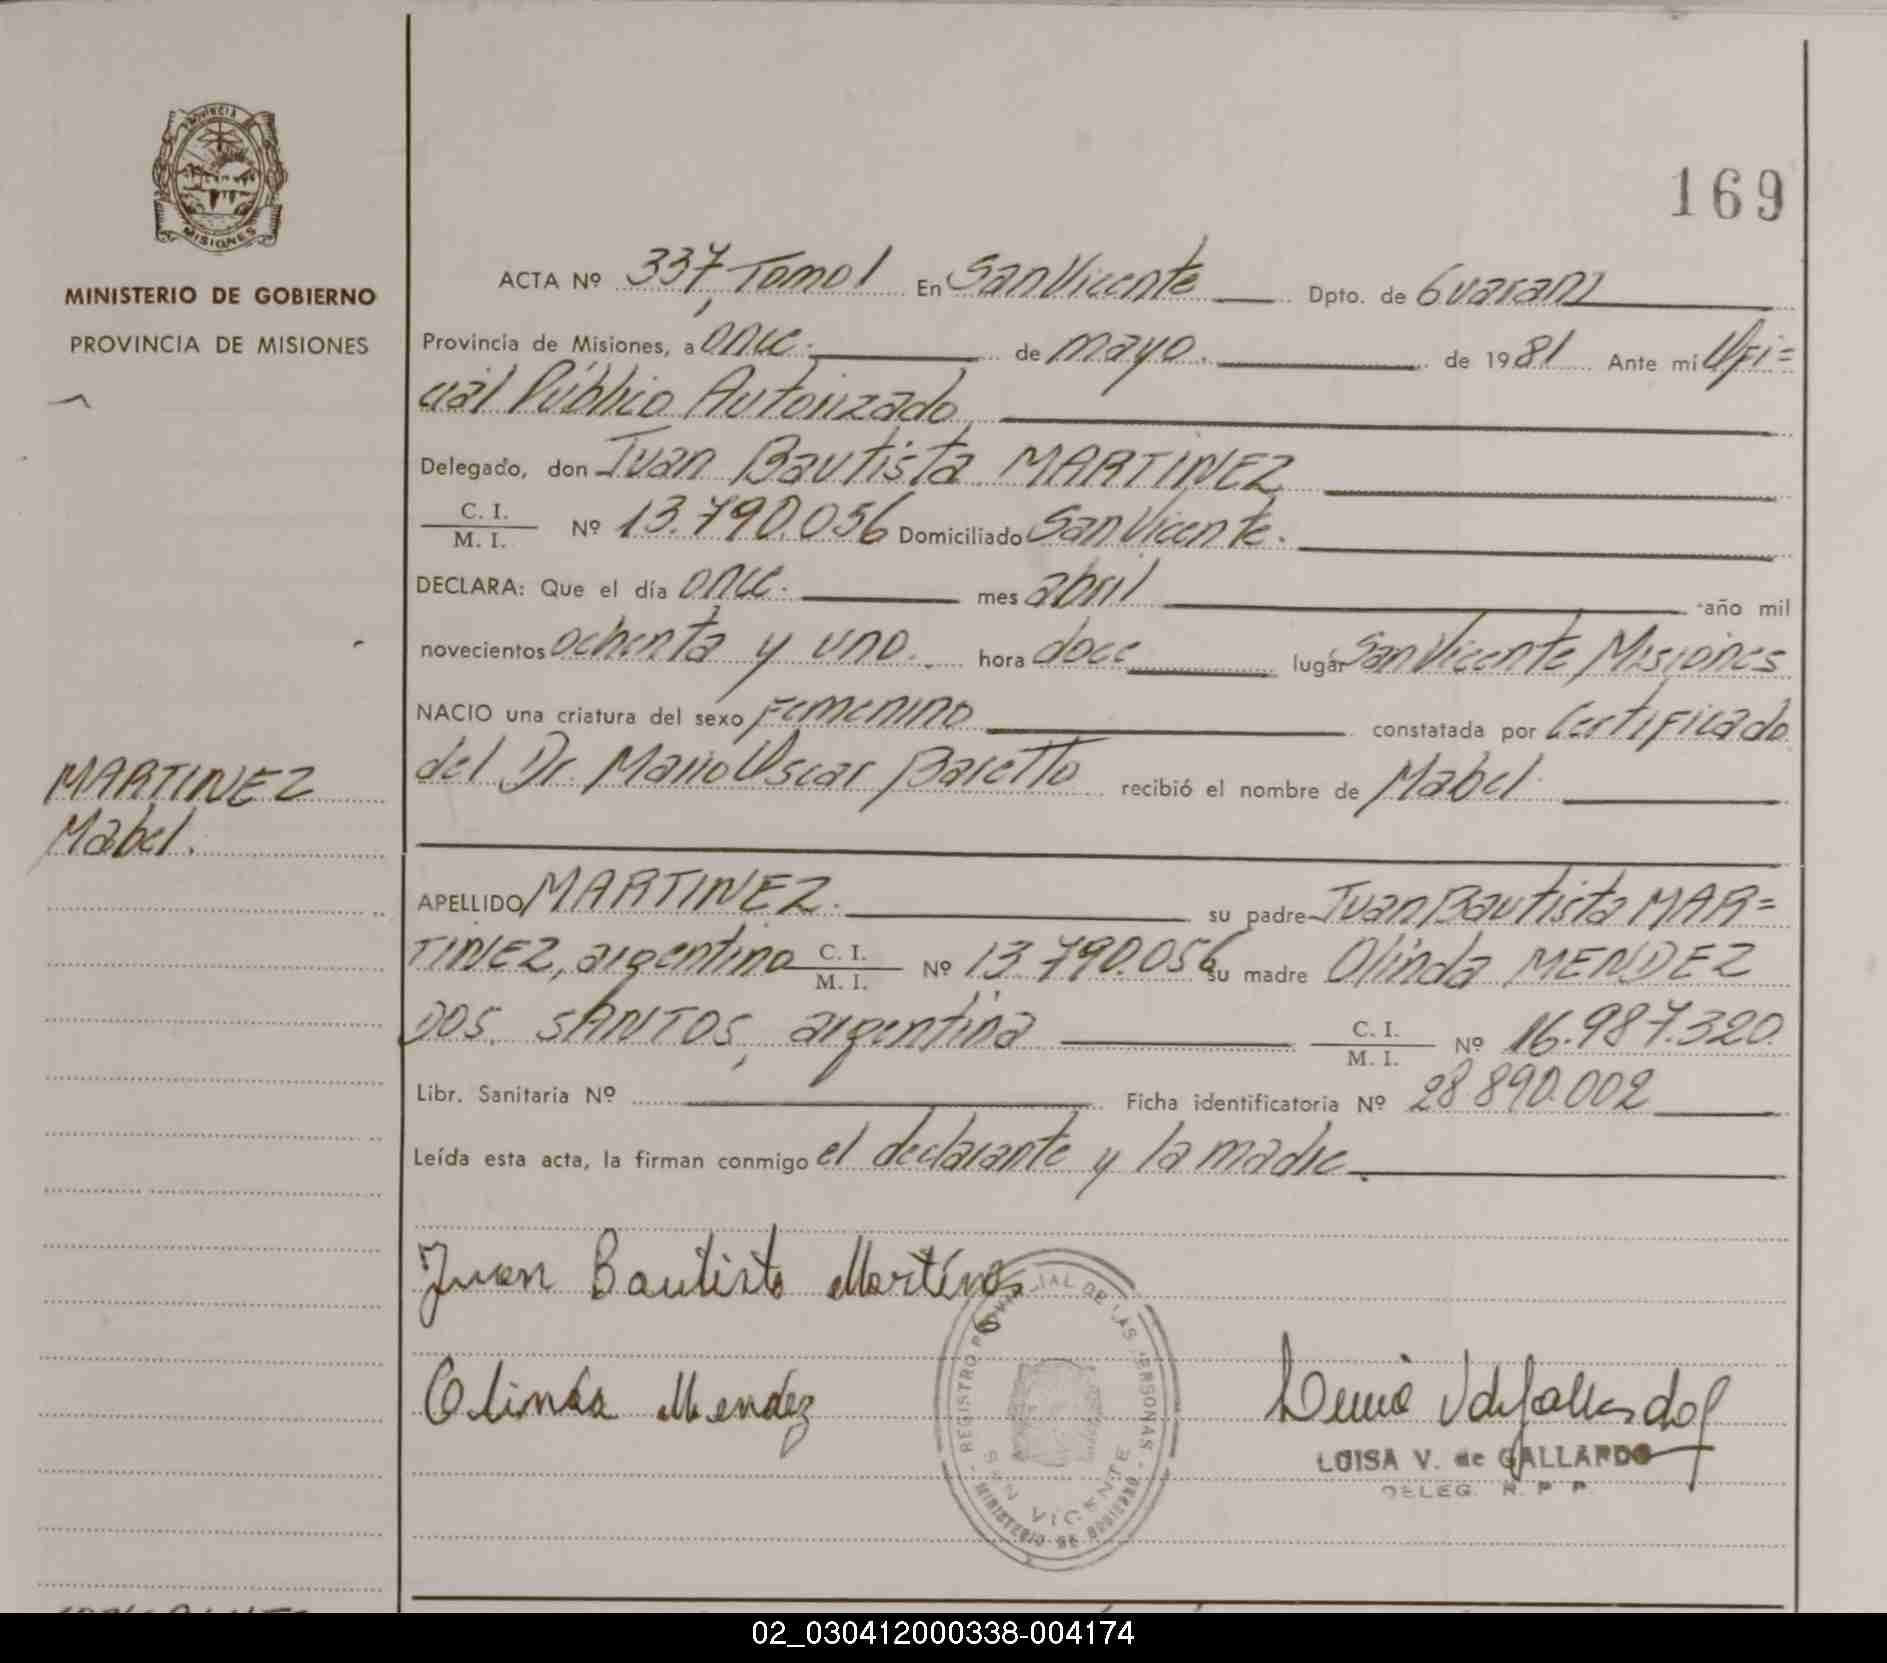 169
PROVINCIA
MISIONES
MINISTERIO DE GOBIERNO
PROVINCIA DE MISIONES
ACTA Nº 337, Tomo I En San Vicente Dpto. de Guaraní
Provincia de Misiones, a once. de mayo. de 1981 Ante mi Ofi=
cial Público Autorizado
Delegado, don Juan Bautista MARTINEZ
C. I. / M. I. Nº 13.790.056 Domiciliado San Vicente.
DECLARA: Que el día once. mes abril año mil
novecientos ochenta y uno. hora doce lugar San Vicente Misiones
NACIO una criatura del sexo Femenino constatada por Certificado
del Dr. Mario Oscar Baretto recibió el nombre de Mabel.
MARTINEZ
Mabel.
APELLIDO MARTINEZ. su padre Juan Bautista MAR=
TINEZ, argentino C. I. / M. I. Nº 13.790.056 su madre Olinda MENDEZ
DOS SANTOS, argentina C. I. / M. I. Nº 16.987.320.
Libr. Sanitaria Nº Ficha identificatoria Nº 28.890.002
Leída esta acta, la firman conmigo el declarante y la madre.
Juan Bautista Martínez
Olinda Mendez
REGISTRO PROVINCIAL DE LAS PERSONAS
SAN VICENTE
MINISTERIO DE GOBIERNO
LUISA V. de GALLARDO
DELEG. R. P. P.
02_030412000338-004174